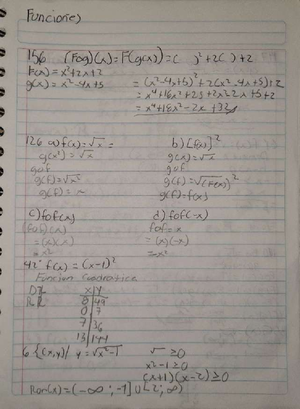 Funciones
156 (Fog)(x) = F(g(x)) = ( )² + 2( ) + 2
F(x) = x² + 2x + 2
g(x) = x² - 4x + 5 = (x² - 4x + 5)² + 2(x² - 4x + 5) + 2
= x⁴ + 16x² + 25 + 2x² - 2x + 5 + 2
= x⁴ + 18x² - 2x + 32
126 a) f(x) = √x = b) [f(x)]²
g(x²) = √x g(x) = √x
gof gof
g(f) = √x² g(f) = √(F(x))²
g(f) = ~ g(f) = f(x)
c) fof(x) d) fof(-x)
(fof)(x) fof = x
= (x)(x) = (x)(-x)
= x² = -x²
42° f(x) = (x-1)²
Funcion Cuadratica
x y
8 49
0 7
7 36
13 144
6 {(x,y)/ y = √x²-1 √ ≥0
x² - 1 ≥ 0
(x+1)(x-2) ≥ 0
Ran(x) = (-∞; -1] U [2; ∞)